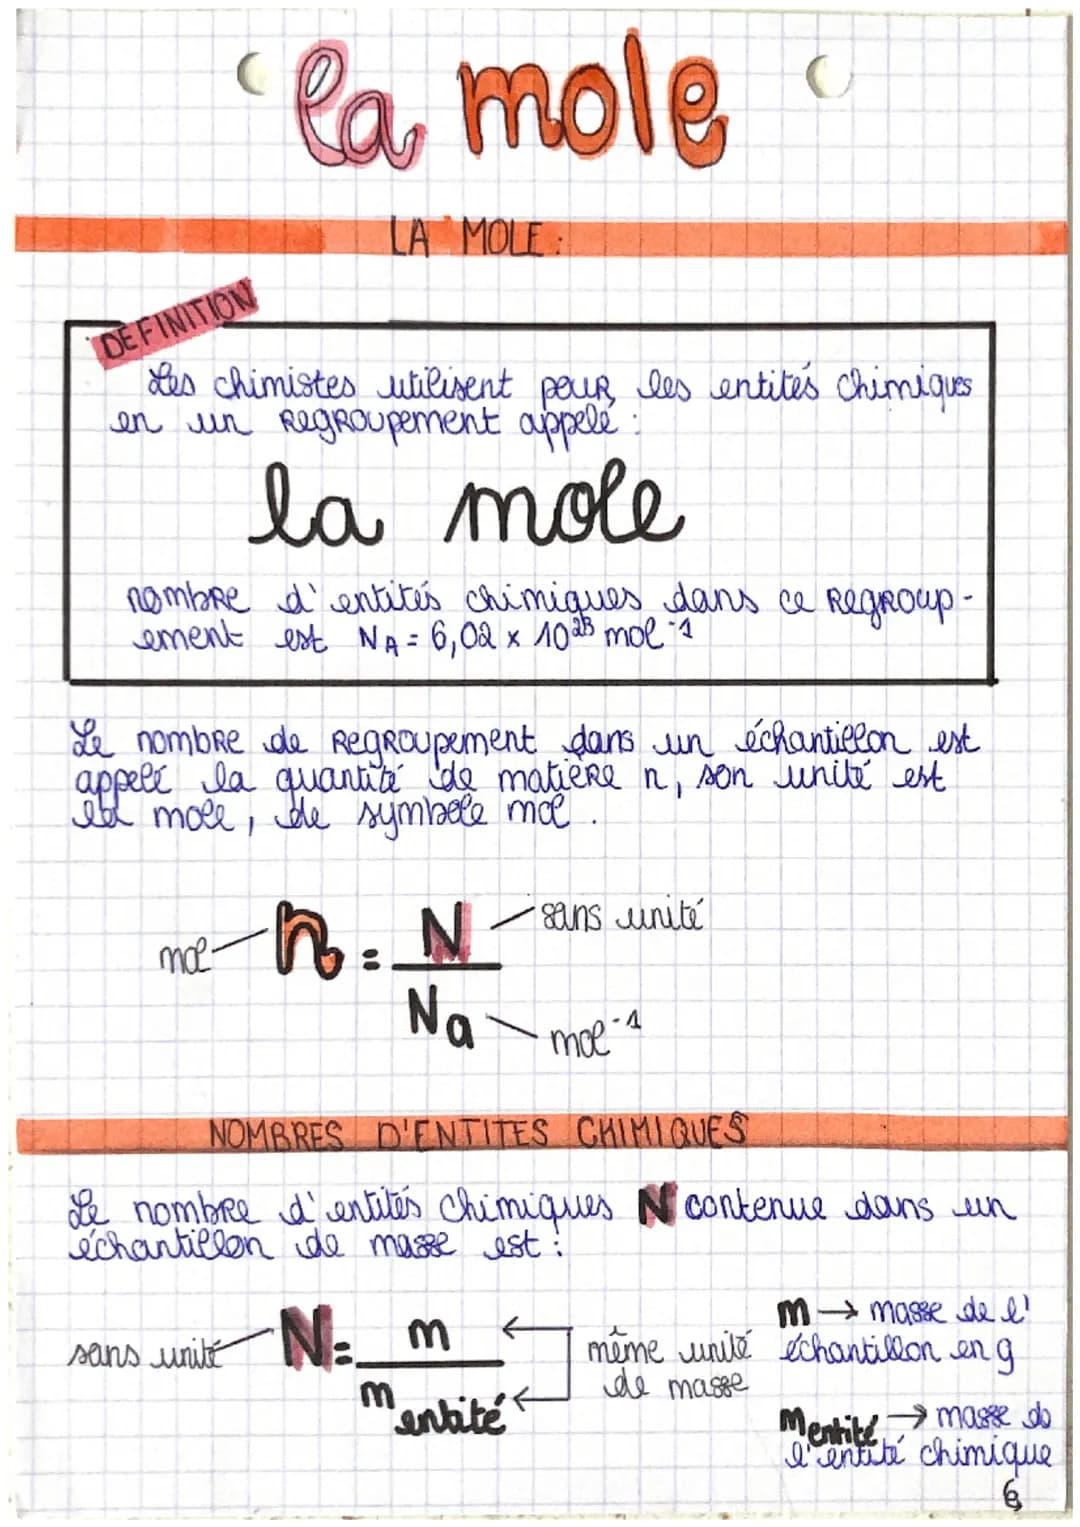 la mole
LA MOLE :
DEFINITION
Les chimistes utilisent pour les entités chimiques
en un regroupement appelé :
la mole
nombre d'entités chimiques dans ce regroup-
ement est NA = 6,02 x 10²³ mol⁻¹
Le nombre de regroupement dans un échantillon est
appelé la quantité de matière n, son unité est
la mole, de symbole mol.
mol n = N sans unité
Na mol⁻¹
NOMBRES D'ENTITES CHIMIQUES
Le nombre d'entités chimiques N contenue dans un
échantillon de masse est :
sans unité N = m
m entité
même unité
de masse
m → masse de l'
échantillon en g
mentité → masse de
l'entité chimique